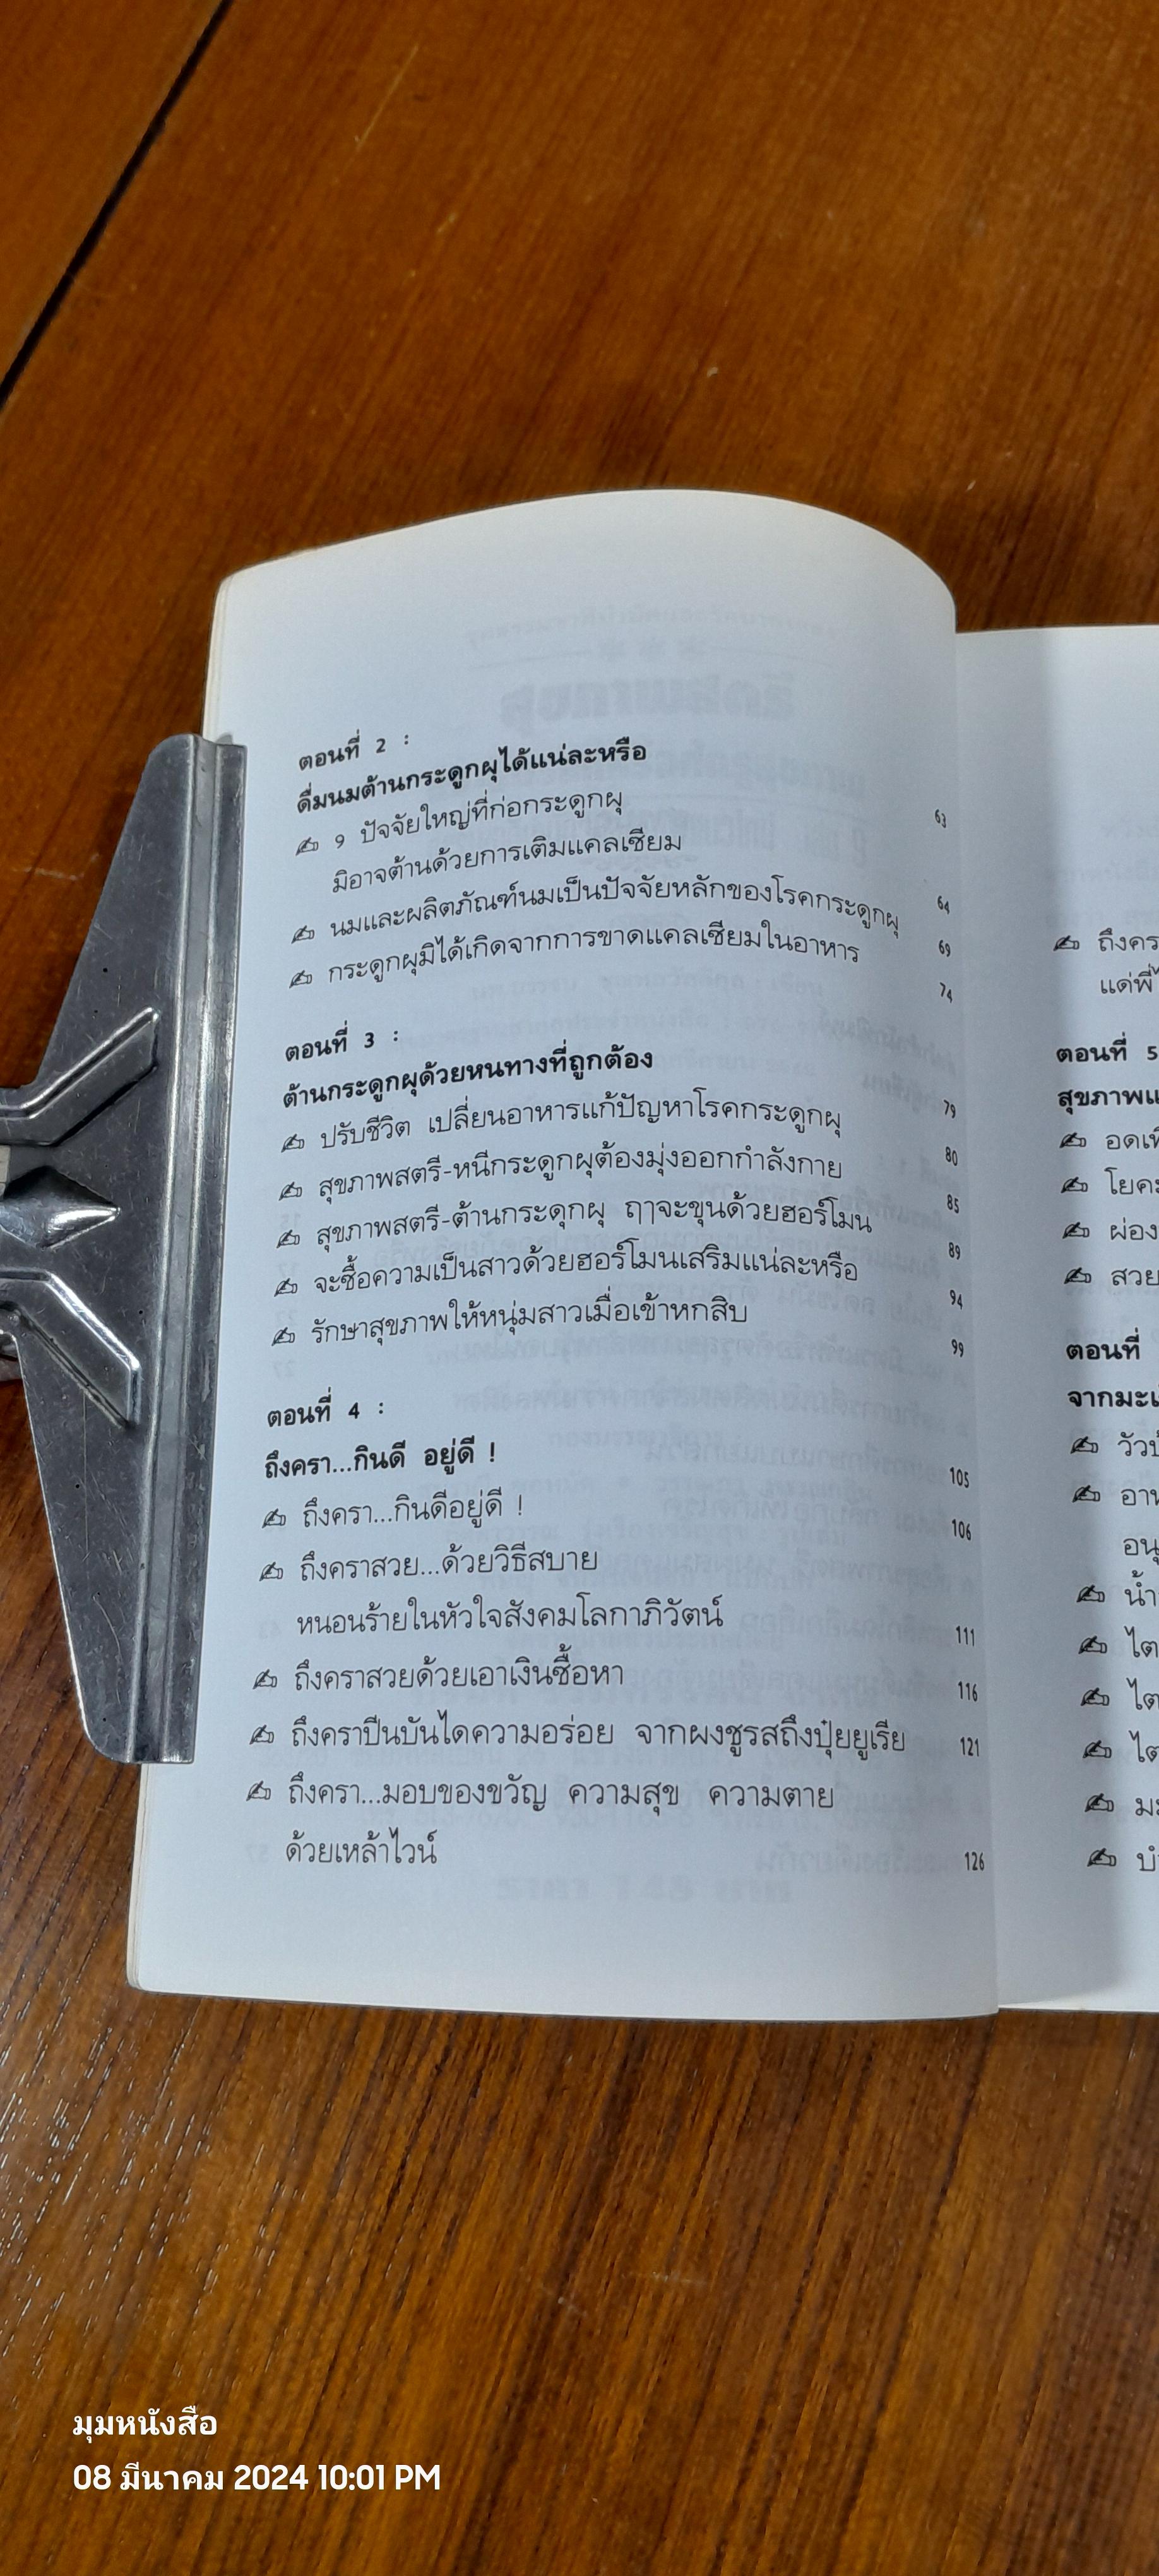 ตอนที่ 2 :
ดื่มนมต้านกระดูกผุได้แน่ละหรือ 63
✍ 9 ปัจจัยใหญ่ที่ก่อกระดูกผุ
มิอาจต้านด้วยการเติมแคลเซียม 64
✍ นมและผลิตภัณฑ์นมเป็นปัจจัยหลักของโรคกระดูกผุ 69
✍ กระดูกผุมิได้เกิดจากการขาดแคลเซียมในอาหาร 74
ตอนที่ 3 :
ต้านกระดูกผุด้วยหนทางที่ถูกต้อง 79
✍ ปรับชีวิต เปลี่ยนอาหารแก้ปัญหาโรคกระดูกผุ 80
✍ สุขภาพสตรี-หนีกระดูกผุต้องมุ่งออกกำลังกาย 85
✍ สุขภาพสตรี-ต้านกระดุกผุ ฤๅจะขุนด้วยฮอร์โมน 89
✍ จะซื้อความเป็นสาวด้วยฮอร์โมนเสริมแน่ละหรือ 94
✍ รักษาสุขภาพให้หนุ่มสาวเมื่อเข้าหกสิบ 99
ตอนที่ 4 :
ถึงครา...กินดี อยู่ดี ! 105
✍ ถึงครา...กินดีอยู่ดี ! 106
✍ ถึงคราสวย...ด้วยวิธีสบาย
หนอนร้ายในหัวใจสังคมโลกาภิวัตน์ 111
✍ ถึงคราสวยด้วยเอาเงินซื้อหา 116
✍ ถึงคราปีนบันไดความอร่อย จากผงชูรสถึงปุ๋ยยูเรีย 121
✍ ถึงครา...มอบของขวัญ ความสุข ความตาย
ด้วยเหล้าไวน์ 126
✍ ถึงคร
แด่พี่
ตอนที่ 5
สุขภาพแ
✍ อด
✍ โยค
✍ ผ่อง
✍ สวย
ตอนที่
จากมะ
✍ วัว
✍ อา
อนุ
✍ น้ำ
✍ ไต
✍ ไต
✍ ไต
✍ ม
✍ บ
มุมหนังสือ
08 มีนาคม 2024 10:01 PM